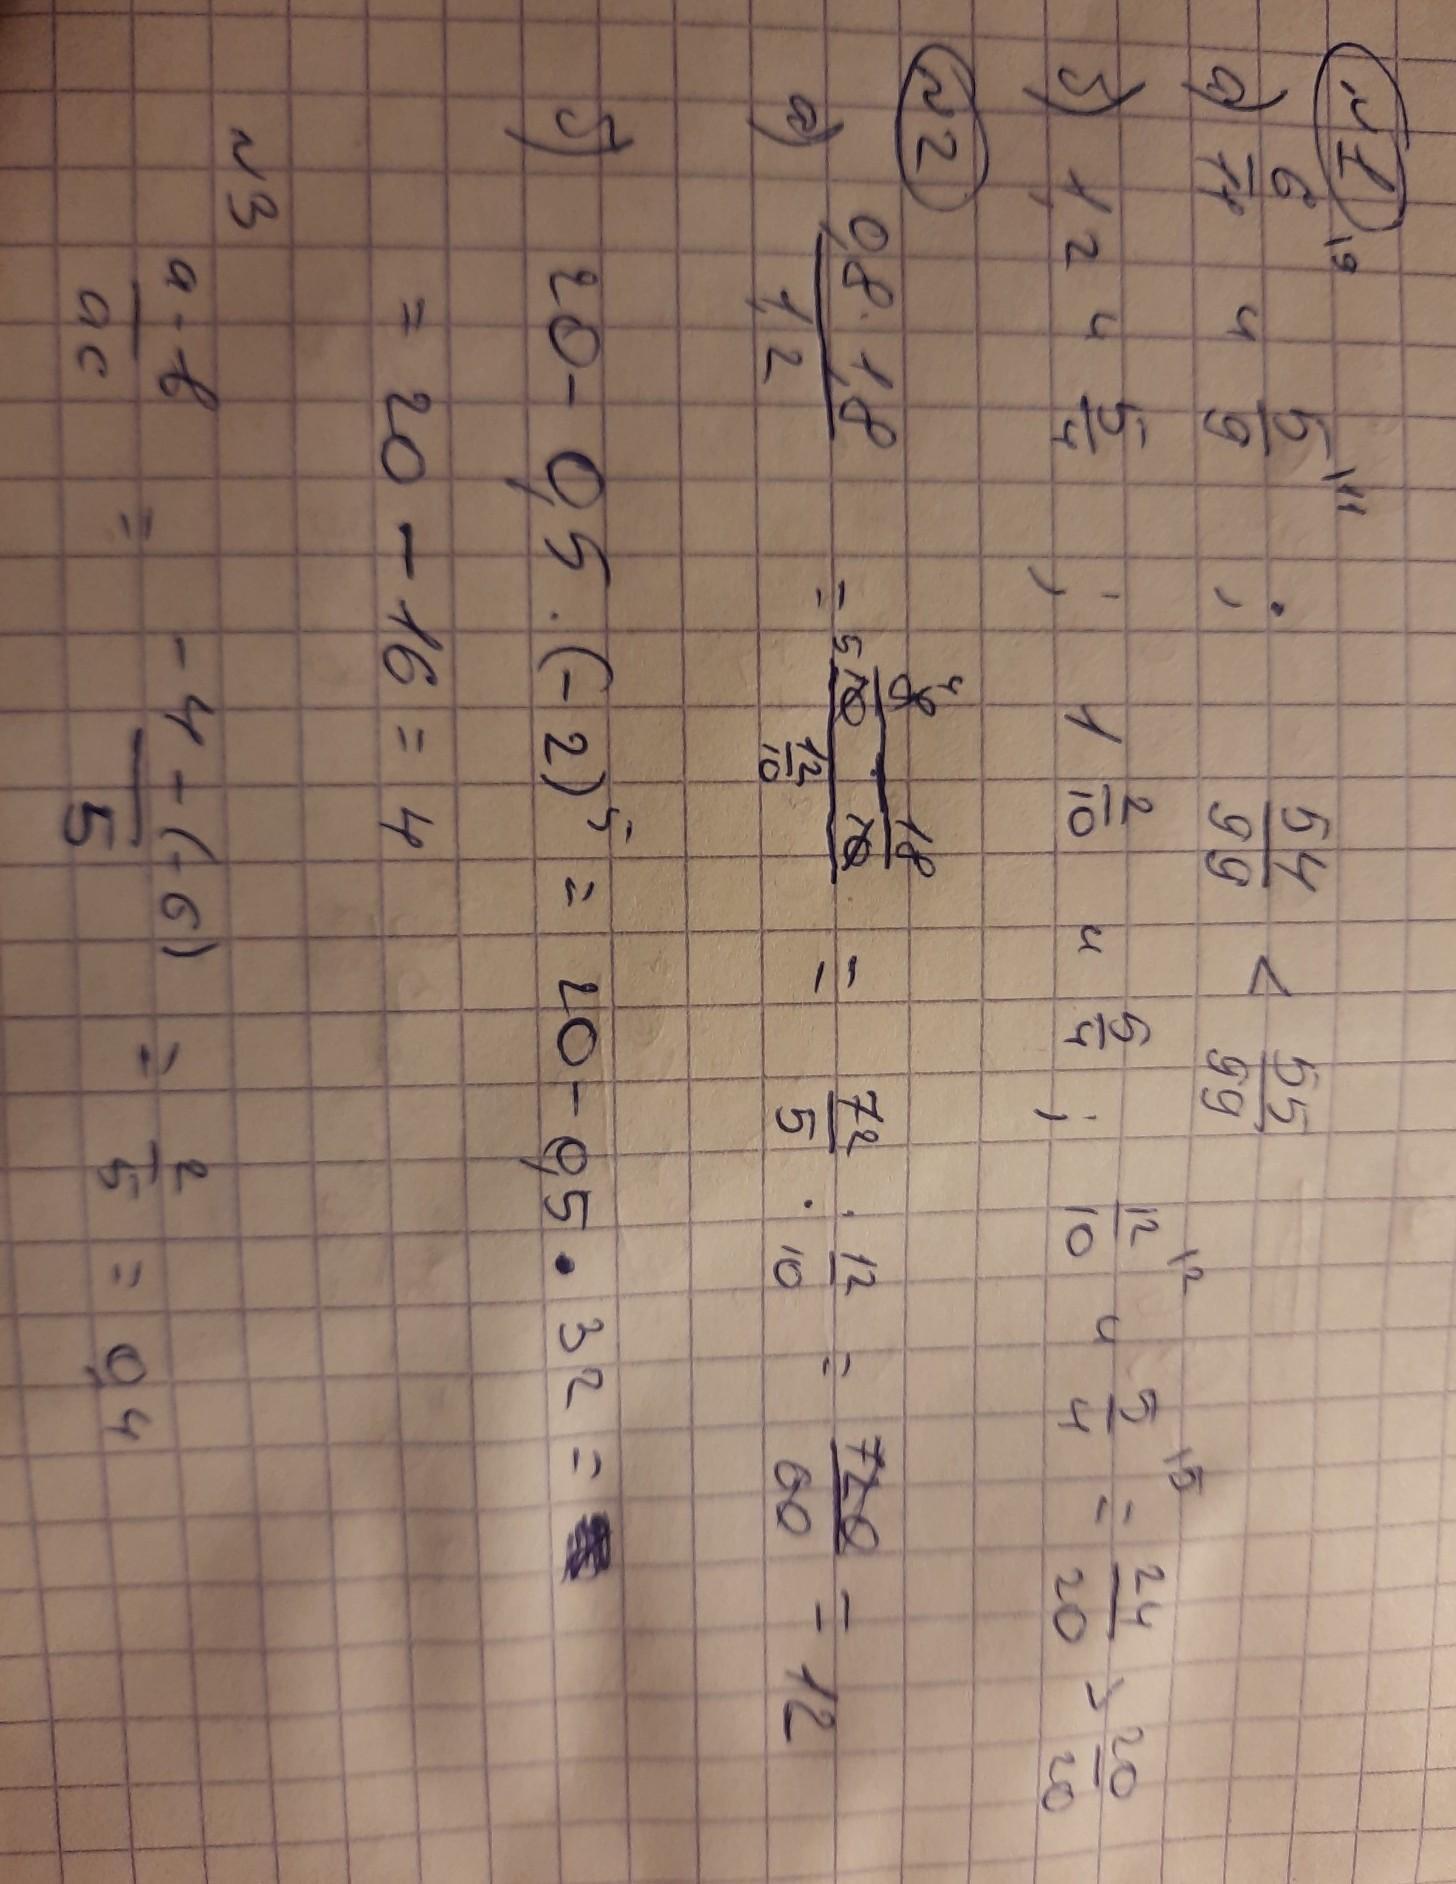 №1
а) 6/11 |9 и 5/9 |11 ; 54/99 < 55/99
б) 1,2 и 5/4 ; 1 2/10 и 5/4 ; 12/10 |2 и 5/4 |5 = 24/20 > 20/20
№2
а) 0,8 · 1,8 / 1,2 = 8/10 · 18/10 / 12/10 = 72/5 · 12/10 = 720/60 = 12
б) 20 - 0,5 · (-2)⁵ = 20 - 0,5 · 32 =
= 20 - 16 = 4
№3
a - b / ac = -4 - (-6) / 5 = 2/5 = 0,4